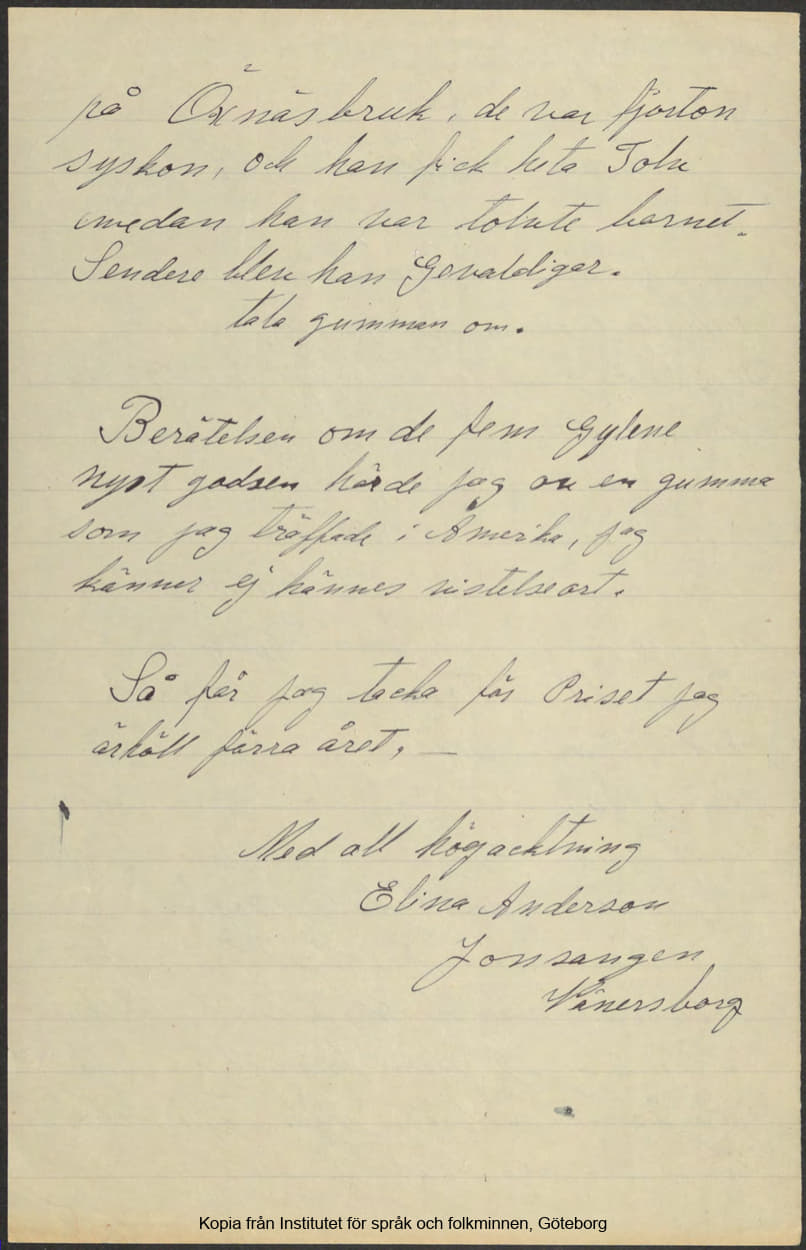 på Öxnäsbruk, de var fjorton
syskon, och han fick heta Tolv
emedan han var tolvte barnet.
Sendere blev han Gevaldigar.
tala gumman om.
Berätelsen om de fem Gylene
nyst godsen hörde jag av en gumma
som jag träffade i Amerika, jag
känner ej hännes vistelseort.
Så får jag tacka för Priset jag
ärhöll förra året, —
Med all högacktning
Elina Anderson
Jonsängen
Vänersborg
Kopia från Institutet för språk och folkminnen, Göteborg